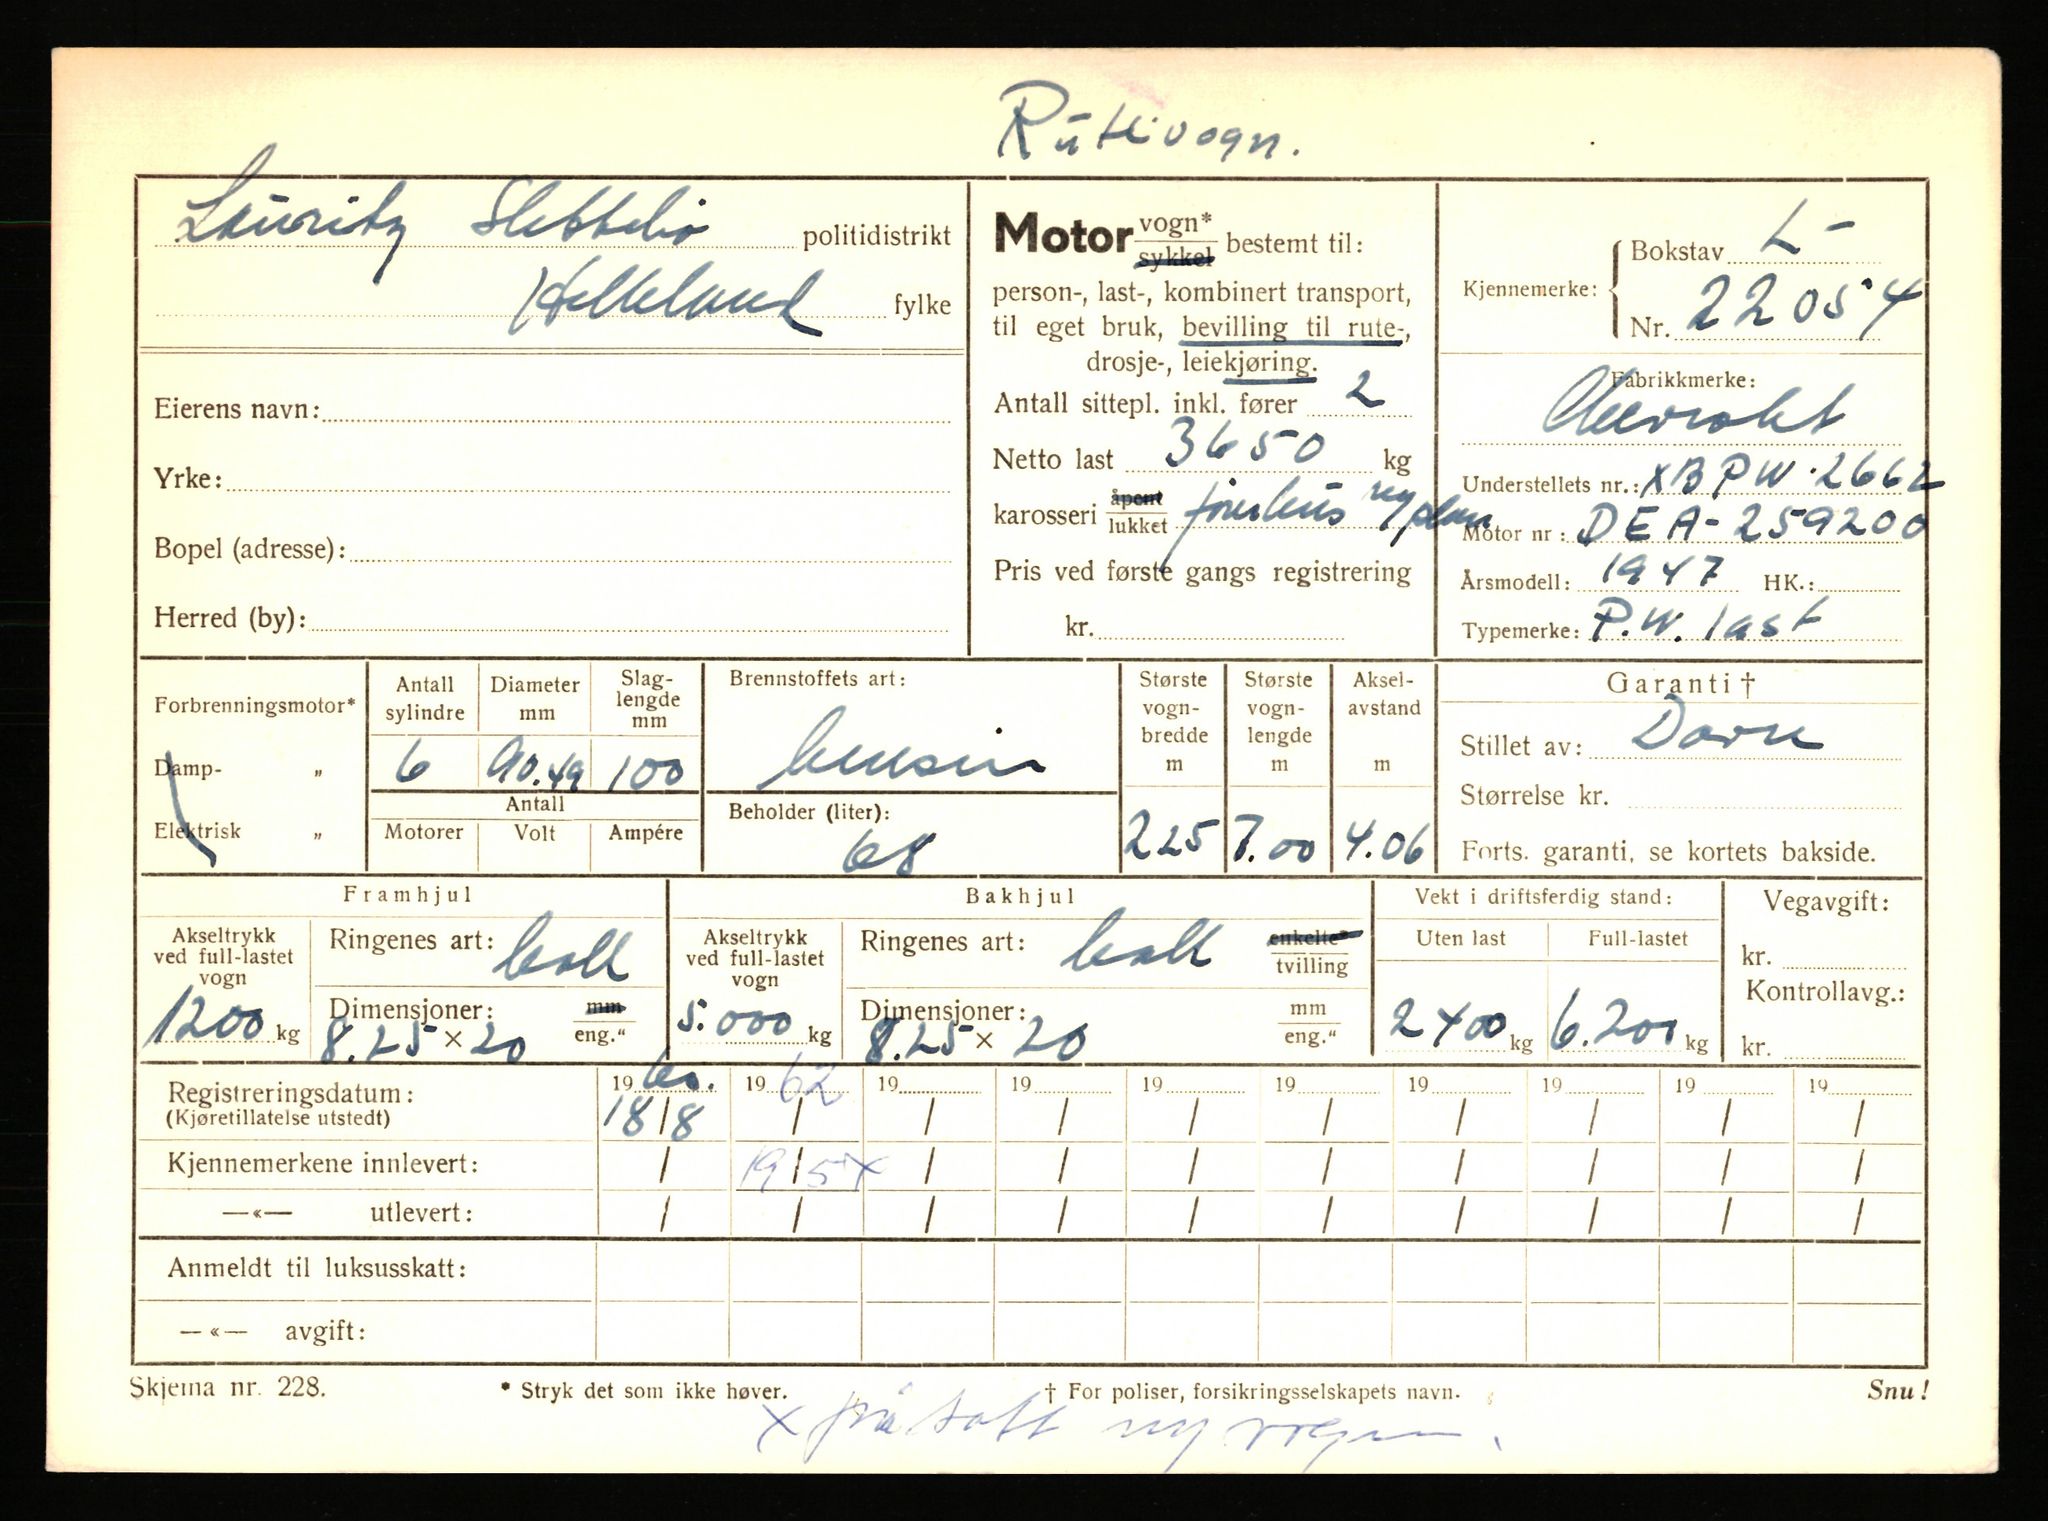 Rutevogn.
Lauritz Slettebø politidistrikt
Helleland fylke
Eierens navn:
Yrke:
Bopel (adresse):
Herred (by):
Motor vogn* / sykkel bestemt til:
person-, last-, kombinert transport,
til eget bruk, bevilling til rute-,
drosje-, leiekjøring.
Antall sittepl. inkl. fører 2
Netto last 3650 kg
karosseri åpent / lukket førerhus og plan
Pris ved første gangs registrering
kr.
Kjennemerke: Bokstav L-
Nr. 22054
Fabrikkmerke:
Chevrolet
Understellets nr.: XBPW.2662
Motor nr: DEA-259200
Årsmodell: 1947 HK.:
Typemerke: P.W. last
Forbrenningsmotor*
Damp- „
Elektrisk „
Antall sylindre Diameter mm Slaglengde mm
6 90.49 100
Antall
Motorer Volt Ampére
Brennstoffets art:
bensin
Beholder (liter):
68
Største vognbredde m Største vognlengde m Akselavstand m
225 7.00 4.06
Garanti †
Stillet av: Dovre
Størrelse kr.
Forts. garanti, se kortets bakside.
Framhjul
Akseltrykk ved full-lastet vogn
1200 kg
Ringenes art: ball
Dimensjoner: mm / eng.“
8.25 x 20
Bakhjul
Akseltrykk ved full-lastet vogn
5.000 kg
Ringenes art: ball enkelte* / tvilling
Dimensjoner: mm / eng.“
8.25 x 20
Vekt i driftsferdig stand:
Uten last Full-lastet
2400 kg 6.200 kg
Vegavgift:
kr.
Kontrollavg.:
kr.
Registreringsdatum: 19 60. 19 62 19 19 19 19 19 19 19 19
(Kjøretillatelse utstedt) 18/8 / / / / / / / / /
Kjennemerkene innlevert: / 19/5 x / / / / / / / /
—«— utlevert: / / / / / / / / / /
Anmeldt til luksusskatt:
—«— avgift:
Skjema nr. 228. * Stryk det som ikke høver. † For poliser, forsikringsselskapets navn. Snu!
x påsatt ny vogn.